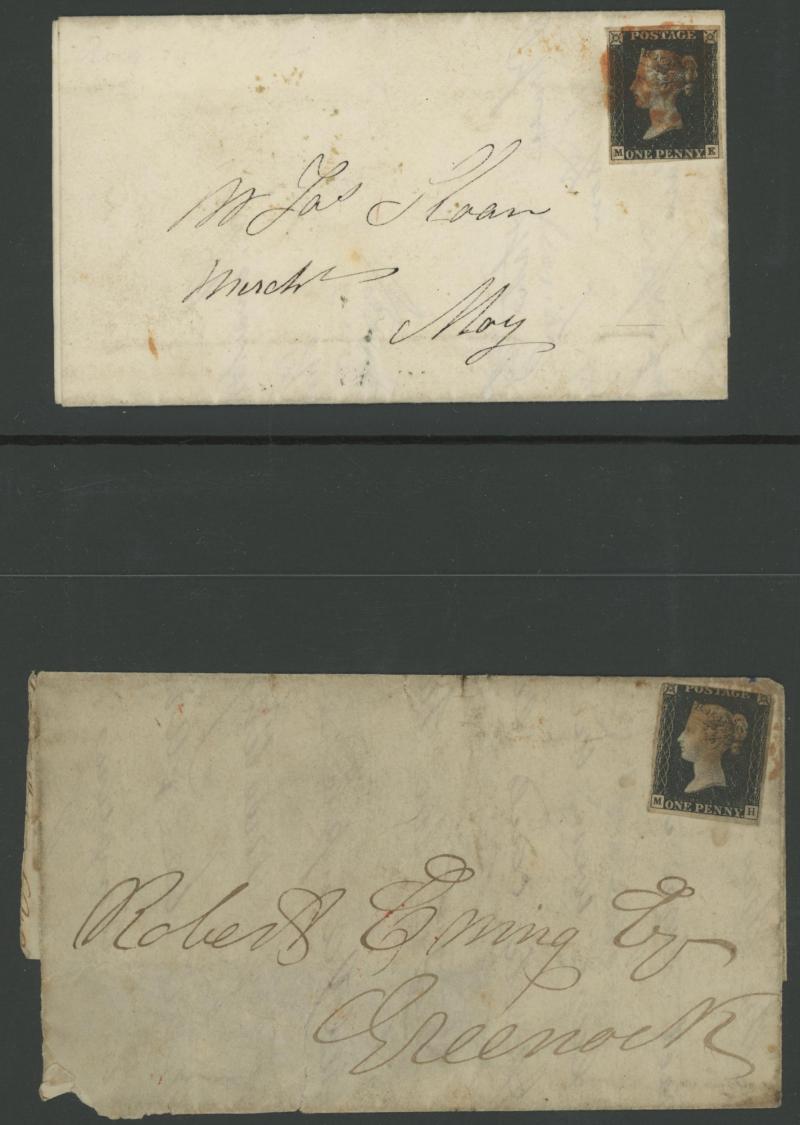 POSTAGE
M ONE PENNY K
Mr Jas Sloan
Mercht
Moy
POSTAGE
M ONE PENNY H
Robert Ewing Esq
Greenock